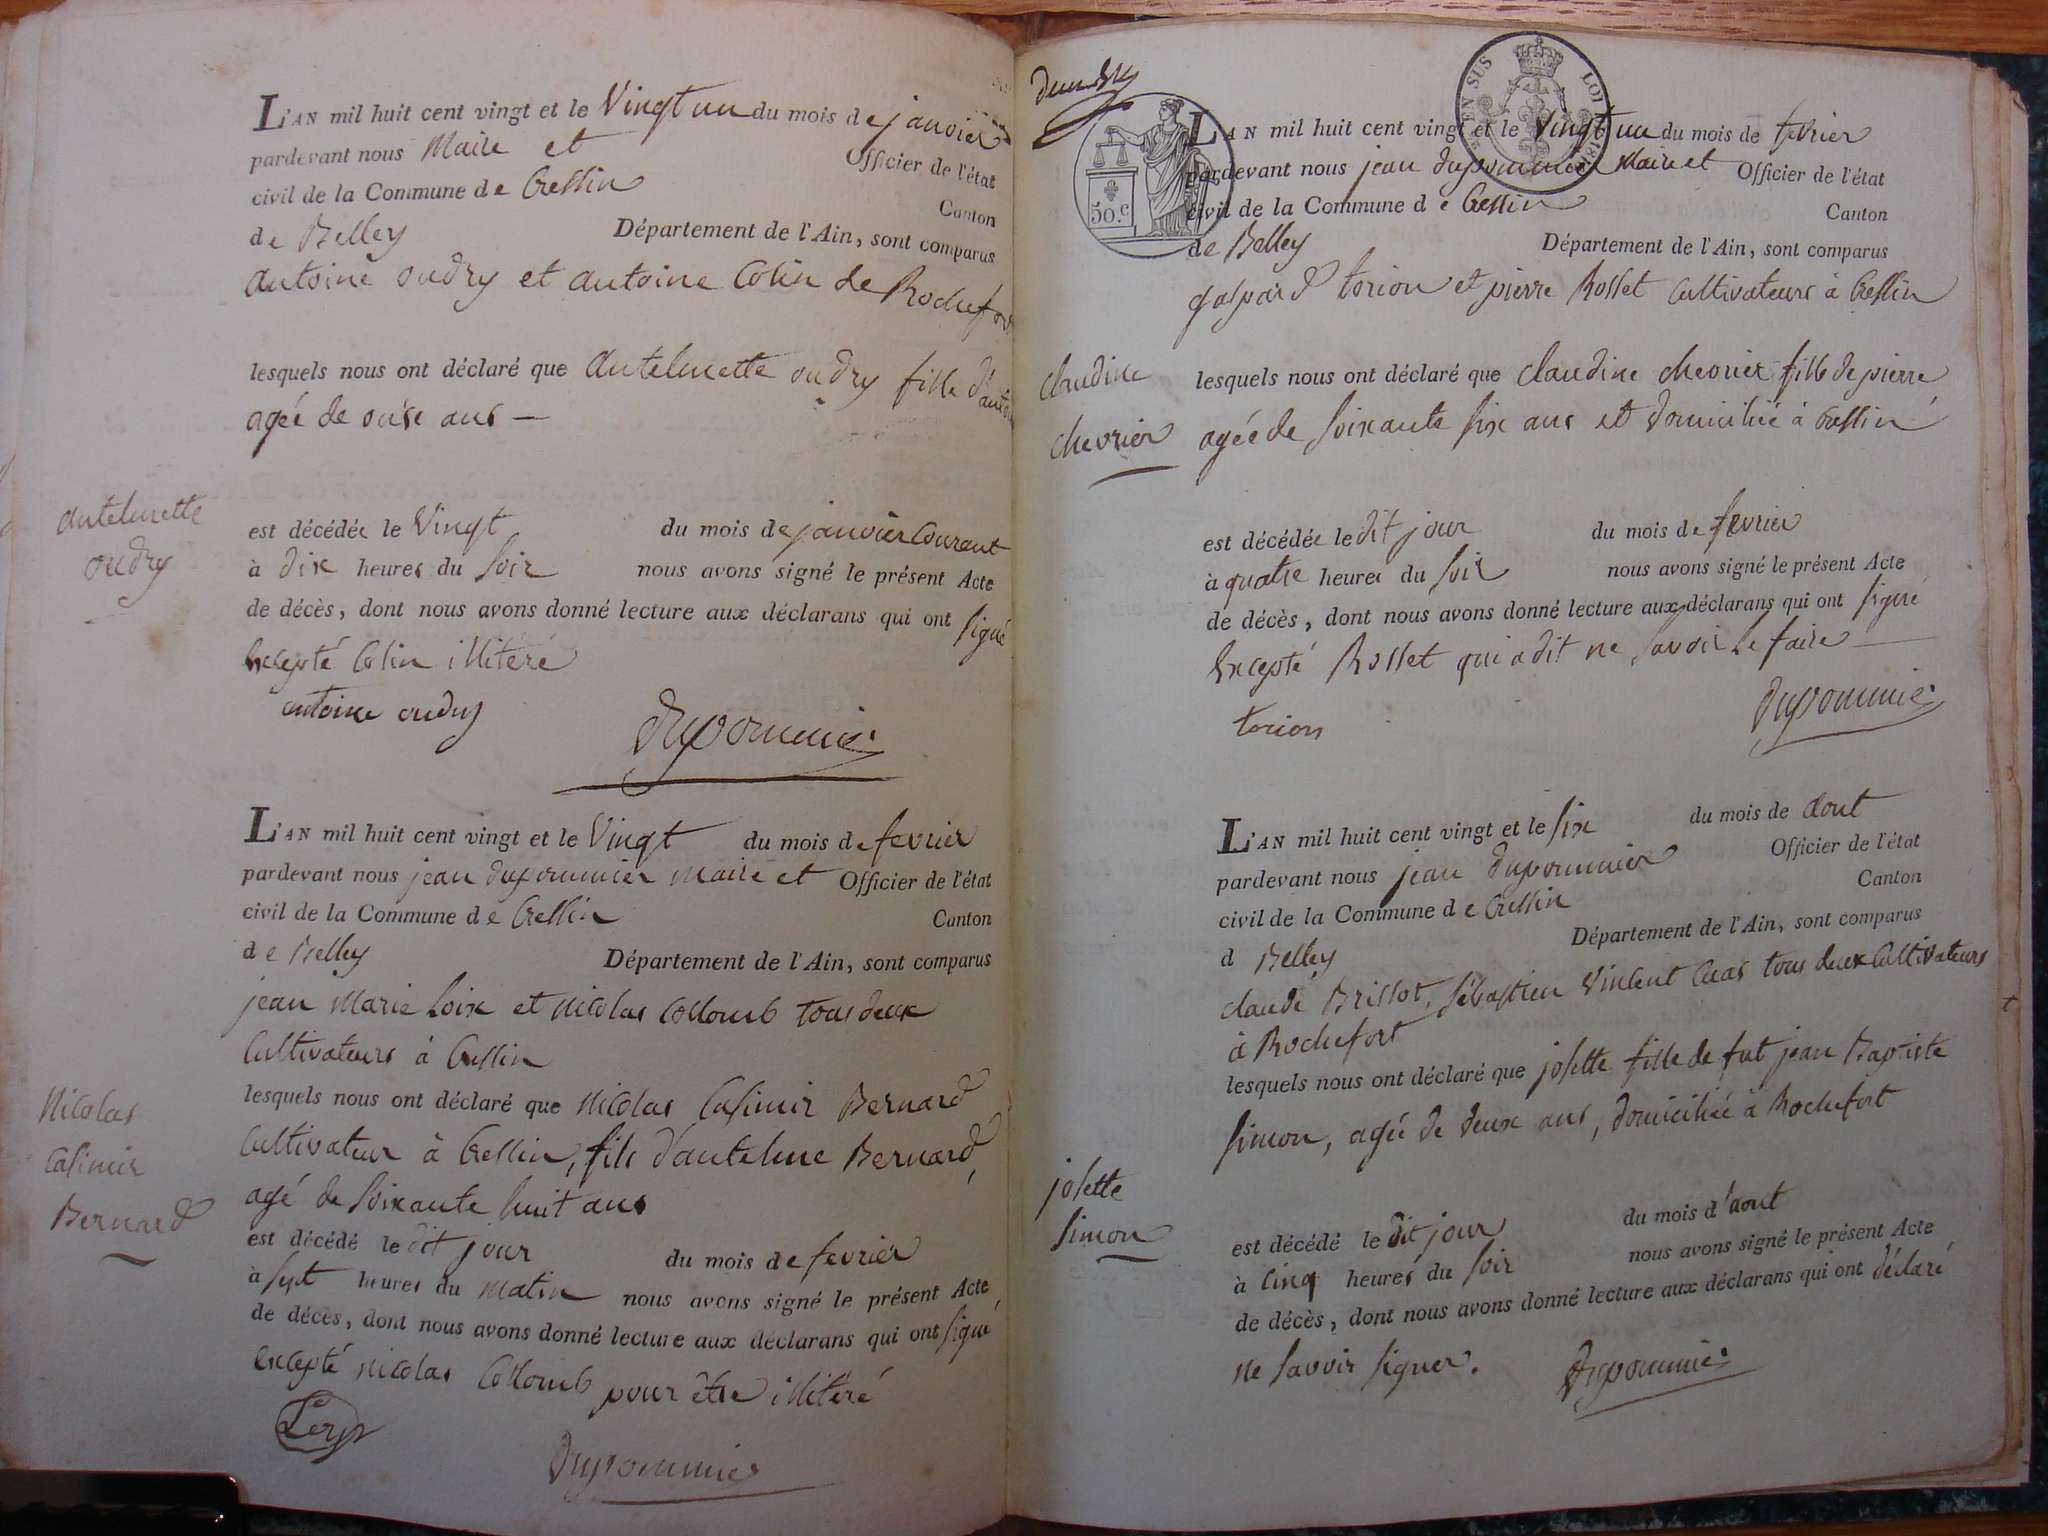 L'AN mil huit cent vingt et le Vingt un du mois de janvier
pardevant nous Maire et Officier de l'état
civil de la Commune de Cressin Canton
de Belley Département de l'Ain, sont comparus
antoine oudry et antoine Colin de Rochefort
lesquels nous ont déclaré que antelmette oudry fille d'antoine
agée de onse ans —
antelmette
oudry
est décédée le Vingt du mois de janvier Courant
à dix heures du soir nous avons signé le présent Acte
de décès, dont nous avons donné lecture aux déclarans qui ont signé
excepté Colin illitéré
antoine oudry
Dupommier
L'AN mil huit cent vingt et le Vingt du mois de fevrier
pardevant nous jean dupommier maire et Officier de l'état
civil de la Commune de Cressin Canton
de Belley Département de l'Ain, sont comparus
jean Marie Loix et nicolas Collomb tous deux
Cultivateurs à Cressin
Nicolas
Casimir
Bernard
lesquels nous ont déclaré que nicolas Casimir Bernard
Cultivateur à Cressin, fils d'antelme Bernard,
agé de soixante huit ans
est décédé le dit jour du mois de fevrier
à sept heures du matin nous avons signé le présent Acte
de décès, dont nous avons donné lecture aux déclarans qui ont signé
excepté nicolas Collomb pour être illitéré
Dupommier
EN SUS LOI 181
50.c
L'AN mil huit cent vingt et le Vingt un du mois de fevrier
pardevant nous jean dupommier Maire et Officier de l'état
civil de la Commune de Cressin Canton
de Belley Département de l'Ain, sont comparus
gaspard torion et pierre Rosset Cultivateurs à Cressin
Claudine
Chevrier
lesquels nous ont déclaré que Claudine chevrier fille de pierre
agée de soixante six ans et domiciliée à Cressin
est décédée le dit jour du mois de fevrier
à quatre heures du soir nous avons signé le présent Acte
de décès, dont nous avons donné lecture aux déclarans qui ont signé
excepté Rosset qui a dit ne savoir le faire —
torion
Dupommier
L'AN mil huit cent vingt et le six du mois de aout
pardevant nous jean dupommier Officier de l'état
civil de la Commune de Cressin Canton
d Belley Département de l'Ain, sont comparus
claude Brissot, sébastien Vincent Cuas tous deux Cultivateurs
à Rochefort
lesquels nous ont déclaré que josette fille de fut jean Baptiste
simon, agée de deux ans, domiciliée à Rochefort
josette
simon
est décédé le dit jour du mois d'aout
à cinq heures du soir nous avons signé le présent Acte
de décès, dont nous avons donné lecture aux déclarans qui ont déclaré
ne savoir signer.
Dupommier